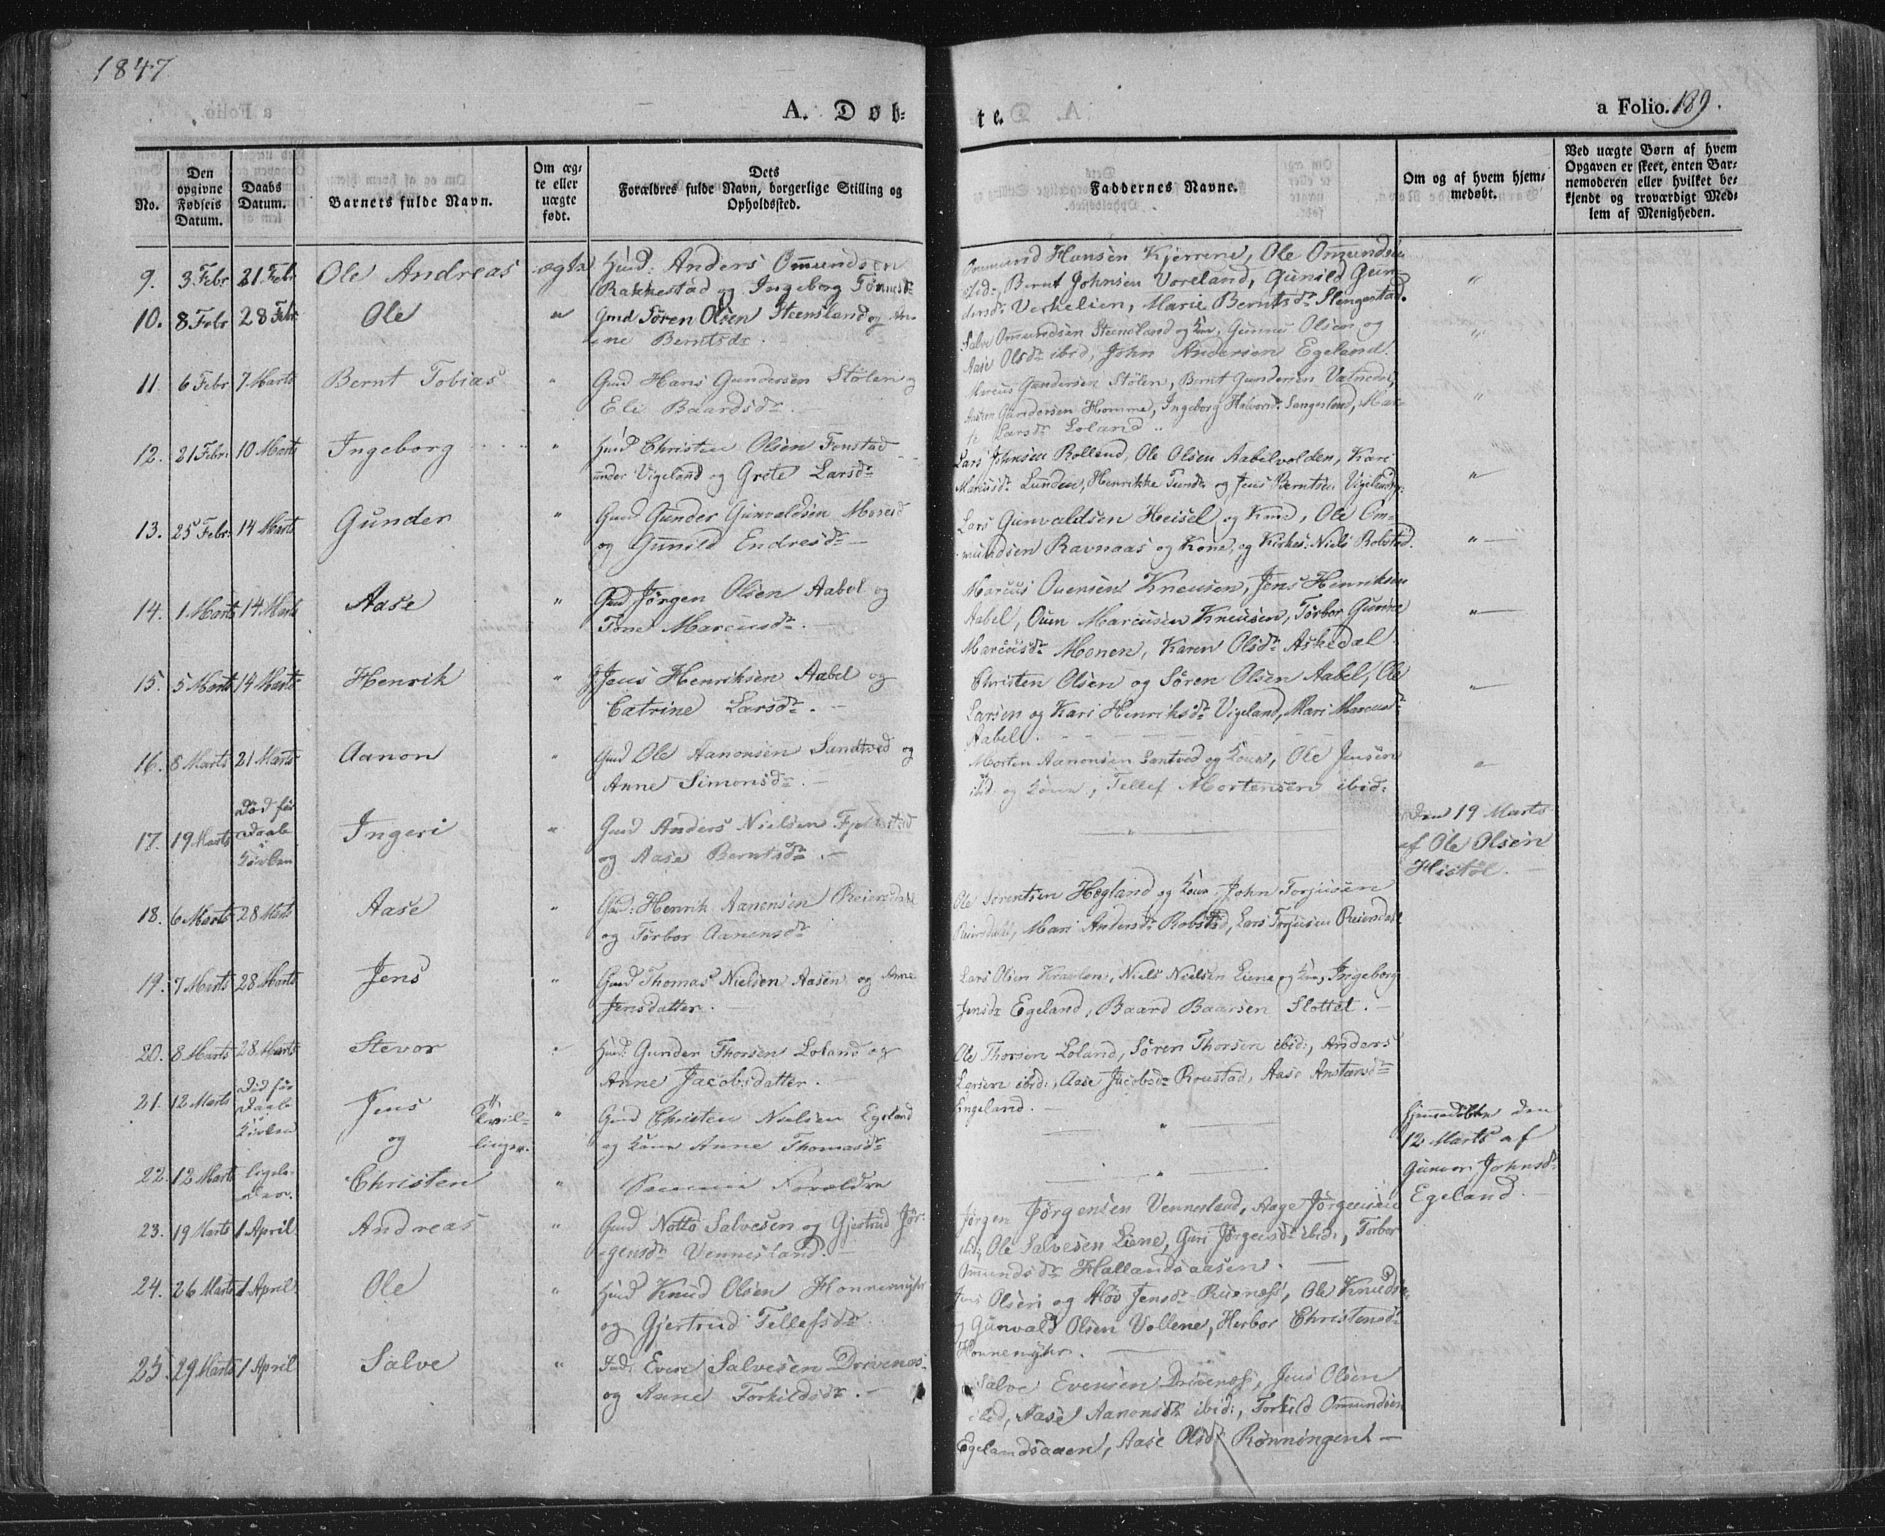 1847
A. Døb-
te.
a Folio. 189.
No.
Den opgivne Fødsels Datum.
Daabs Datum.
Barnets fulde Navn.
Om ægte eller uægte født.
Dets Forældres fulde Navn, borgerlige Stilling og Opholdssted.
Faddernes Navne.
Om og af hvem hjemmedøbt.
Ved uægte Børn af hvem Opgaven er skeet, enten Barnemoderen eller hvilket bekjendt og troværdigt Medlem af Menigheden.
9. 3 Febr 21 Febr Ole Andreas ægte Huusd: Anders Omundsen
Rakkestad og Ingeborg Tønnesdr
Ommund Hansen Kjerrene, Ole Omundsen
ibid: Bernt Johnsen Voreland, Gunild Gun-
dersdr Verkelien, Marie Berntsdr Slengestad.
10. 8 Febr 28 Febr Ole " Gmd Søren Olsen Steensland og An-
ine Berntsdr.
Salve Ommundsen Steensland og Kone, Gunnu Olsen og
Aase Olsdr ibid, John Andersen Egeland.
11. 6 Febr 7 Marts Bernt Tobias " Gmd Hans Gundersen Stølen og
Eli Baardsdr. —
Marcus Gundersen Stølen, Bernt Gundersen Vatnedal,
Anders Gundersen Homme, Ingeborg Halvorsdr Sangesland, Mar-
te Larsdr Loland
12. 21 Febr: 10 Marts Ingeborg " Huusd Christen Olsen Fonstad
under Vigeland og Grete Larsdr
Lars Johnsen Rolland, Ole Olsen Aabelvolden, Kari
Marcusdr Lunden, Henrikke Tundr og Jens Berntsen Vigeland
13. 25 Febr: 14 Marts Gunder " Gmd Gunder Gunvaldsen Moseid
og Gunild Endresdr —
Lars Gunvaldsen Heisel og Kone, Ole Om-
mundsen Ravnaas og Kone, og Kirkes: Niels Robstad. " —
14. 1 Marts 14 Marts Aase " Gmd Jørgen Olsen Aabel og
Tone Marcusdr. —
Marcus Ouensen Kneusen, Jens Henriksen
Aabel, Oun Marcusen Kneusen, Torbor Gunne
Marcusdr Monen, Karen Olsdr Askedal " —
15. 5 Marts 14 Marts Henrik " Jens Henriksen Aabel og
Catrine Larsdr. —
Christen Olsen og Søren Olsen Aabel, Ole
Larsen og Kari Henriksdr Vigeland, Mari Marcusdr
Aabel.
16. 8 Marts 21 Marts Aanon " Gmd Ole Aanonsen Santved og
Anne Simonsdr. —
Morten Aanonsen Santved og Kone, Ole Jensen
ibid: og Kone, Tellef Mortensen ibid:
17. 19 Marts Død før Daab i Kirken Ingeri " Gmd Anders Nielsen Fjellestad
og Aase Berntsdr. —
Den 19 Marts
af Ole Olsen
Histøl. —
18. 6 Marts 28 Marts Aase " Gmd: Henrik Aanensen Reiersdal
og Torbor Aanensdr
Ole Sørentsen Hægland og Kone, John Torjusen
Reiersdal, Mari Andersdr Robstad, Lars Torjusen Reiersdal
19. 7 Marts 28 Marts Jens " Gmd Thomas Nielsen Aasen og Anne
Jensdatter. —
Lars Olsen Kraalen, Niels Nielsen Liene og Kone, Ingeborg
Jensdr Egeland, Baard Baarsen Slottet. —
20. 8 Marts 28 Marts Stevor " Huusd: Gunder Thorsen Loland og
Anne Jacobsdatter. —
Ole Thorsen Loland, Søren Thorsen ibid:, Anders
Larsen ibid:, Aase Jacobsdr Roustad, Aase Anstensdr
Engeland. —
21. 12 Marts Død før Daab i Kirken Jens
og Tvil-
linger. " Gmd Christen Nielsen Egeland
og Kone Anne Thomasdr
Hjemmedøbte den
12 Marts af
Gunvor Johnsdr
Egeland. —
22. 12 Marts ligele-
des. Christen " Samme Forældre
23. 19 Marts 1 April Andreas " Gmd Notto Salvesen og Gjertrud Jør-
gensdr Vennesland. —
Jørgen Jørgensen Vennesland, Aage Jørgensen
ibid:, Ole Salvesen Liene, Guri Jørgensdr ibid:, Torbor
Omundsdr Hallandsaasen. —
24. 26 Marts 1 April Ole " Huusd Knud Olsen Honnemyhr
og Gjertrud Tellefsdr
Jens Olsen og Aløv Jensdr Ruenæs, Ole Knudsen
og Gunvald Olsen Vollene, Herbor Christensdr
Honnemyhr. —
25. 29 Marts 1 April Salve " Even Salvesen Drivenæs
og Anne Torkildsdr. —
Salve Evensen Drivenæs, Jens Olsen
ibid, Aase Aanonsdr ibid:, Torkild Ommundsen
Egelandsaaen, Aase Olsdr Rønningen. —